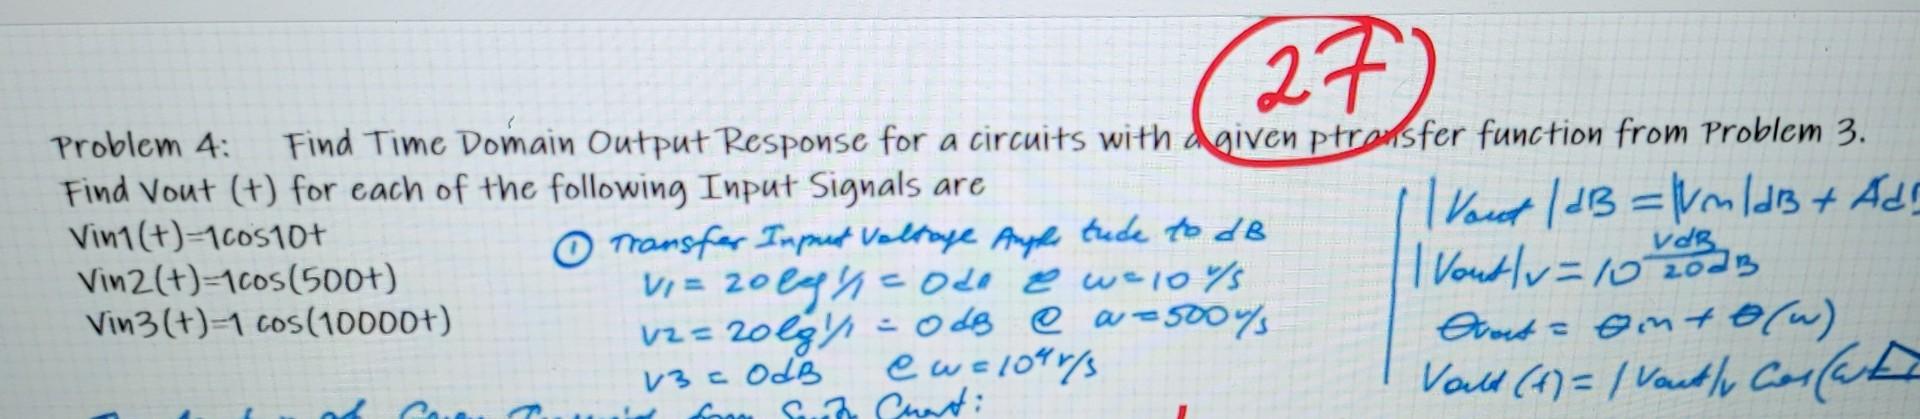 27
Problem 4: Find Time Domain Output Response for a circuits with a given ptransfer function from Problem 3.
Find Vout (t) for each of the following Input Signals are
Vin1(t)=1cos10t
Vin2(t)=1cos(500t)
Vin3(t)=1 cos(10000t)
① Transfer Input Voltage Ampli tude to dB
V1 = 20 log 1/1 = 0 dB @ w=10 r/s
V2 = 20 lg 1/1 = 0 dB @ w=500 r/s
V3 = 0dB @ w=10⁴ r/s
|Vout|dB = |Vin|dB + AdB
|Vout|v = 10^(VdB/20dB)
θvout = θin + θ(w)
Vout (t) = |Vout|v Cos(wt
of Given from Smith Chart: